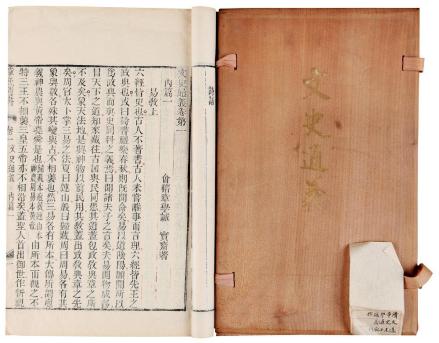 文史通義卷第一
內篇一
會稽章學誠 實齋著
易教上
六經皆史也古人不著書古人未嘗離事而言理六經皆先王之
政典也或曰詩書禮樂春秋則既聞命矣易以道陰陽願聞所以
為政典而與史同科之義焉曰聞諸夫子之言矣夫易開物成務
冒天下之道知來藏往吉凶與民同患其道蓋包政教典章之所
不及矣象天法地是興神物以前民用其教蓋出政教典章之先
矣周官太卜掌三易之法夏曰連山殷曰歸藏周曰周易各有其
象與數各殊其變與占不相襲也然三易各有所本大傳所謂庖
羲神農與黃帝堯舜是也由所本而觀之不
特三王不相襲三皇五帝亦不相沿矣蓋聖人首出御世作新視
章氏遺書 卷一 文史通義 內篇一
文史通義